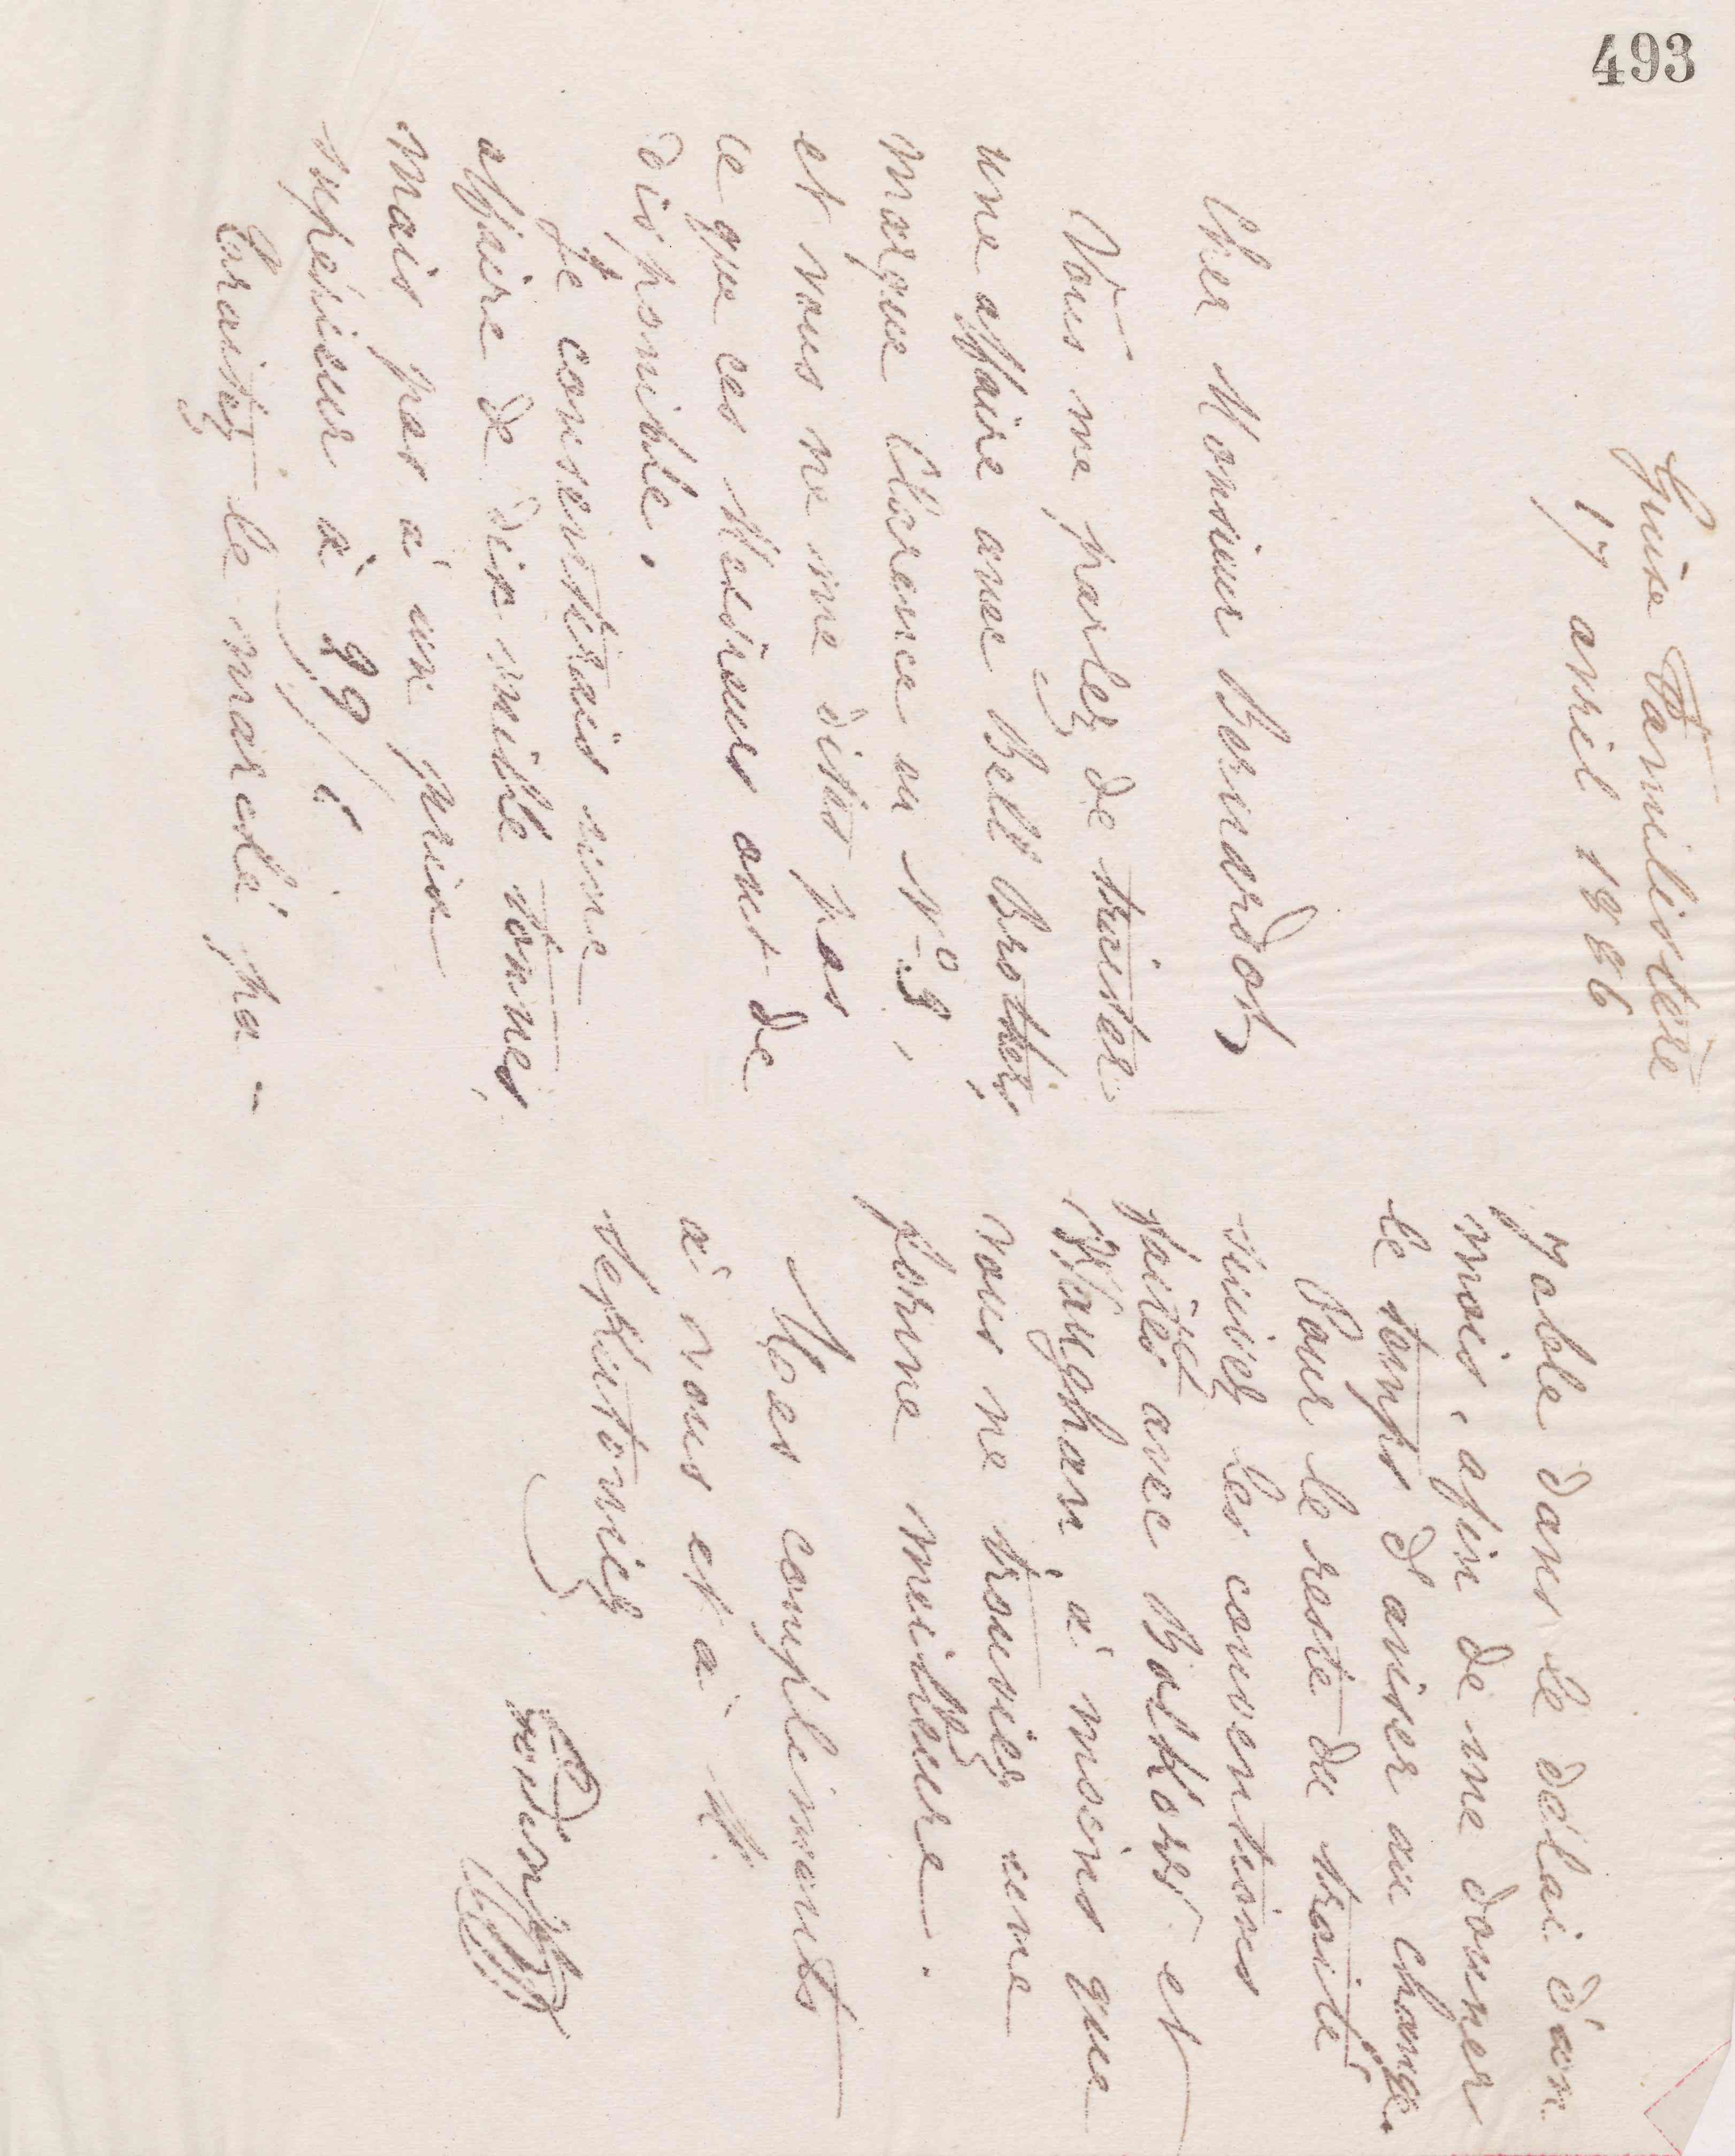 493
Guise Familistère
17 avril 1886
Cher Monsieur Bourdoz
Vous me parlez de traiter
une affaire avec Bells Brothers,
marque Clarence au N° 3,
et vous ne me dites pas
ce que ces Messieurs ont de
disponible.
Je consentirais une
affaire de dix mille tonnes,
mais pas à un prix
supérieur à
Traitez le marché pa-
yable dans le délai d'un
mois, afin de me donner
le temps d'aviser au change.
Pour le reste du traité
suivez les conventions
faites avec Bolkow et
Waughan, à moins que
vous ne trouviez une
forme meilleure.
Mes compliments
à vous et à M.
Godin